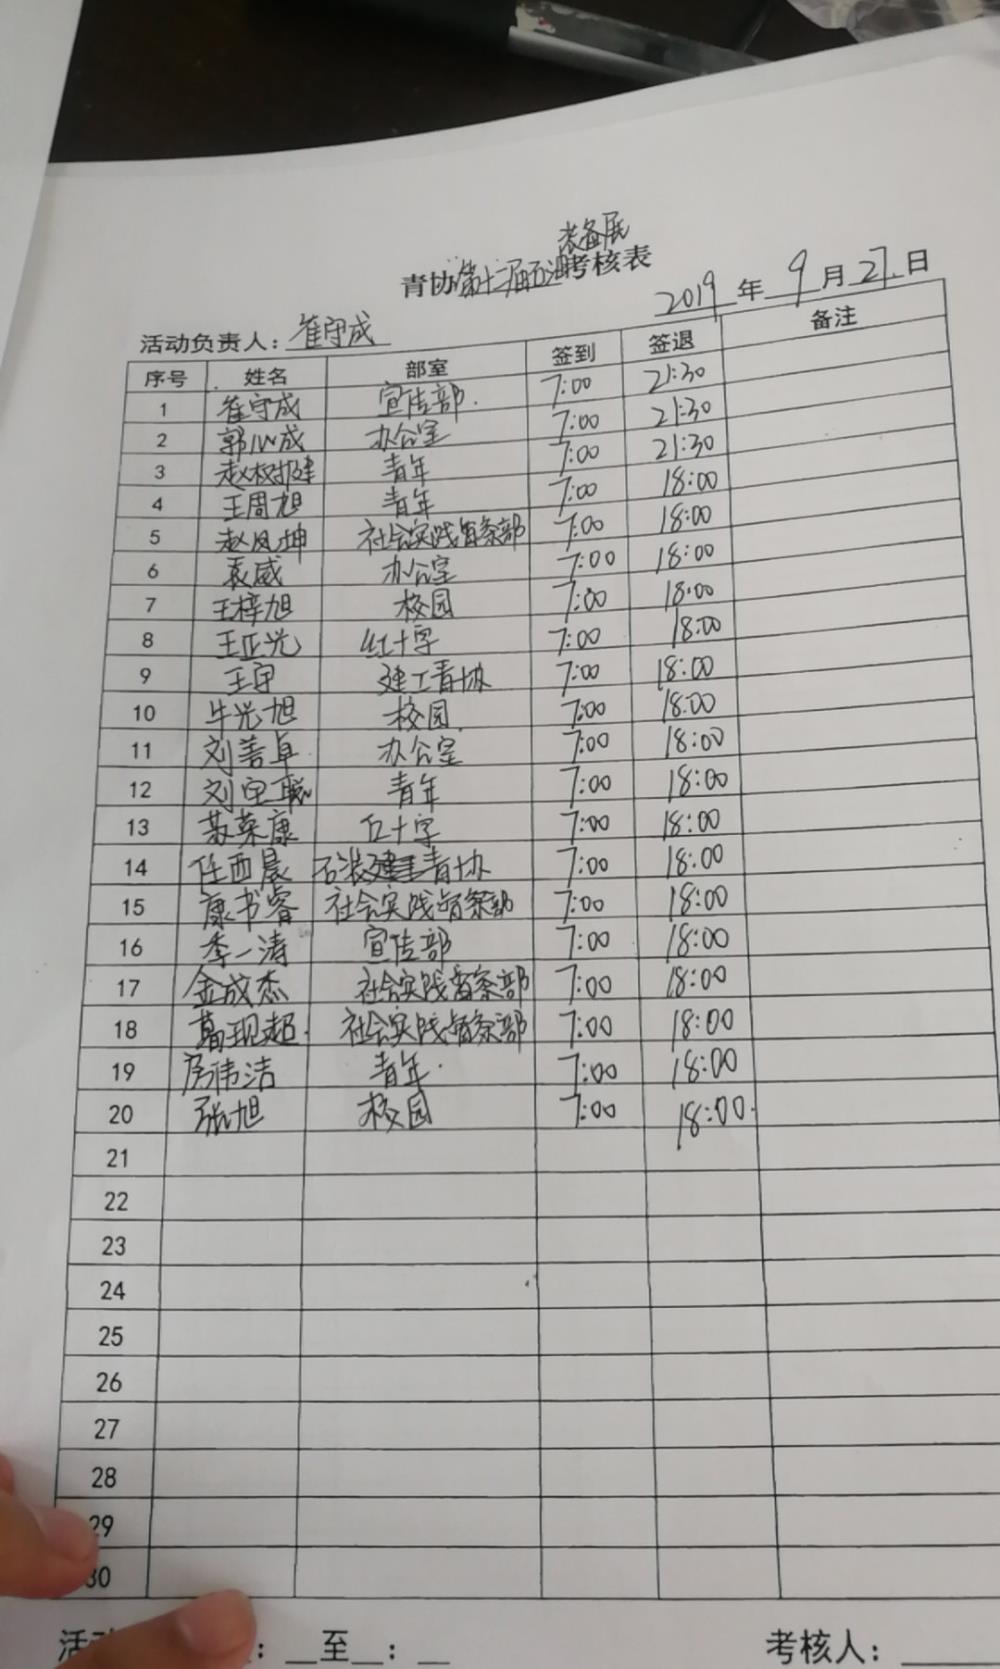 装备展
青协第十二届石油考核表
2019年9月21日
活动负责人：崔守成
序号 姓名 部室 签到 签退 备注
1 崔守成 宣传部 7:00 21:30
2 郭心成 办公室 7:00 21:30
3 赵树建 青年 7:00 21:30
4 王周旭 青年 7:00 18:00
5 赵凤坤 社会实践与督察部 7:00 18:00
6 袁威 办公室 7:00 18:00
7 王梓旭 校园 7:00 18:00
8 王亚光 红十字 7:00 18:00
9 王宇 建工青协 7:00 18:00
10 牛光旭 校园 7:00 18:00
11 刘善卓 办公室 7:00 18:00
12 刘 青年 7:00 18:00
13 苏荣康 红十字 7:00 18:00
14 任西晨 石装建工青协 7:00 18:00
15 康书睿 社会实践与督察部 7:00 18:00
16 李一涛 宣传部 7:00 18:00
17 金成杰 社会实践督察部 7:00 18:00
18 葛现超 社会实践与督察部 7:00 18:00
19 房伟洁 青年 7:00 18:00
20 张旭 校园 7:00 18:00
21
22
23
24
25
26
27
28
29
30
活 ：__至__：__ 考核人：